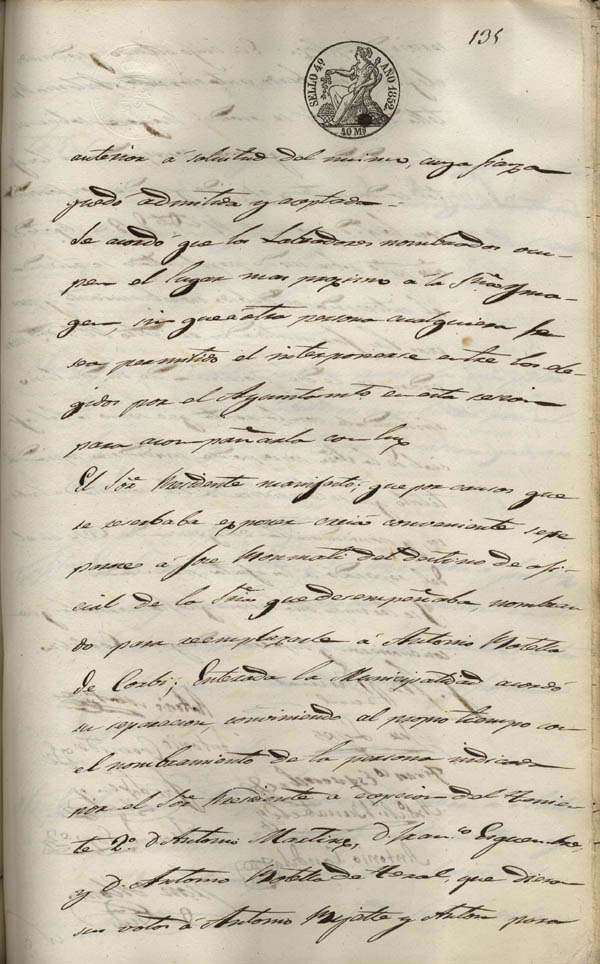 135
SELLO 4º AÑO 1852.
40 Ms
anterior á solicitud del mismo, cuya fianza
quedó admitida y aceptada.
Se acordó que los Labradores nombrados ocu-
pen el lugar mas proximo á la Sta Yma-
gen, sin que otra persona cualquiera le
sea permitido el interponerse entre los ele-
gidos por el Ayuntamto en esta sesion
para acompañarla con luz
El Sor Presidente manifestó; que por causas que
se reserbaba exponer creia conveniente se se
parase á José del destino de ofi-
cial de la Sria que desempeñaba, nombran
do para reemplazarle á Antonio
de Corbi; Enterada la Municipalidad acordó
su separacion, conviniendo al propio tiempo con
el nombramiento de la persona indicada
por el Sor Presidente a escepcion del Tenien-
te 2º D. Antonio Martinez, D. Franco
y D. Antonio de que dieron
sus votos á Antonio y Anton para